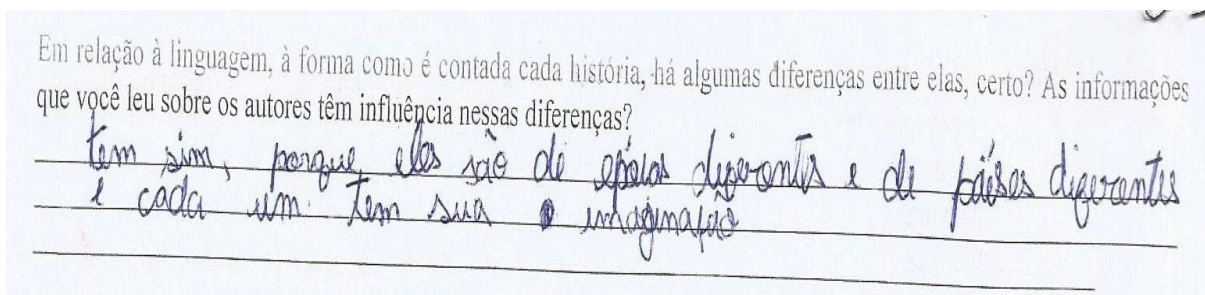 Em relação à linguagem, à forma como é contada cada história, há algumas diferenças entre elas, certo? As informações
que você leu sobre os autores têm influência nessas diferenças?
tem sim, porque eles são de epócas diferentes e de páises diferentes
e cada um tem sua imaginação